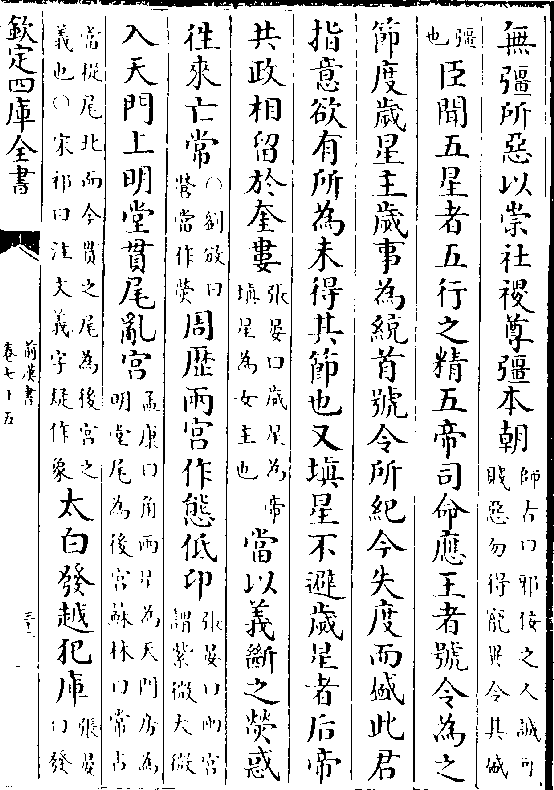 無彊所惡以崇社稷尊彊本朝師古曰邪佞之人誠可賤惡勿得寵異令其盛
彊也臣聞五星者五行之精五帝司命應王者號令為之
節度歳星主歳事為統首號令所紀今失度而盛此君
指意欲有所為未得其節也又塡星不避歳星者后帝
共政相留於奎婁張晏曰歳星為帝塡星為女主也當以義斷之熒惑
徃來亡常○劉攽曰營當作熒周歴兩宫作態低卬張晏曰兩宫謂紫微大微
入天門上明堂貫尾亂宫孟康曰角兩星為天門房為明堂尾為後宫蘇林曰常占
當從尾北而今貫之尾為後宫之義也○宋祁曰注文義字疑作象太白發越犯庫張晏曰發
欽定四庫全書
前漢書
卷七十五
三十一